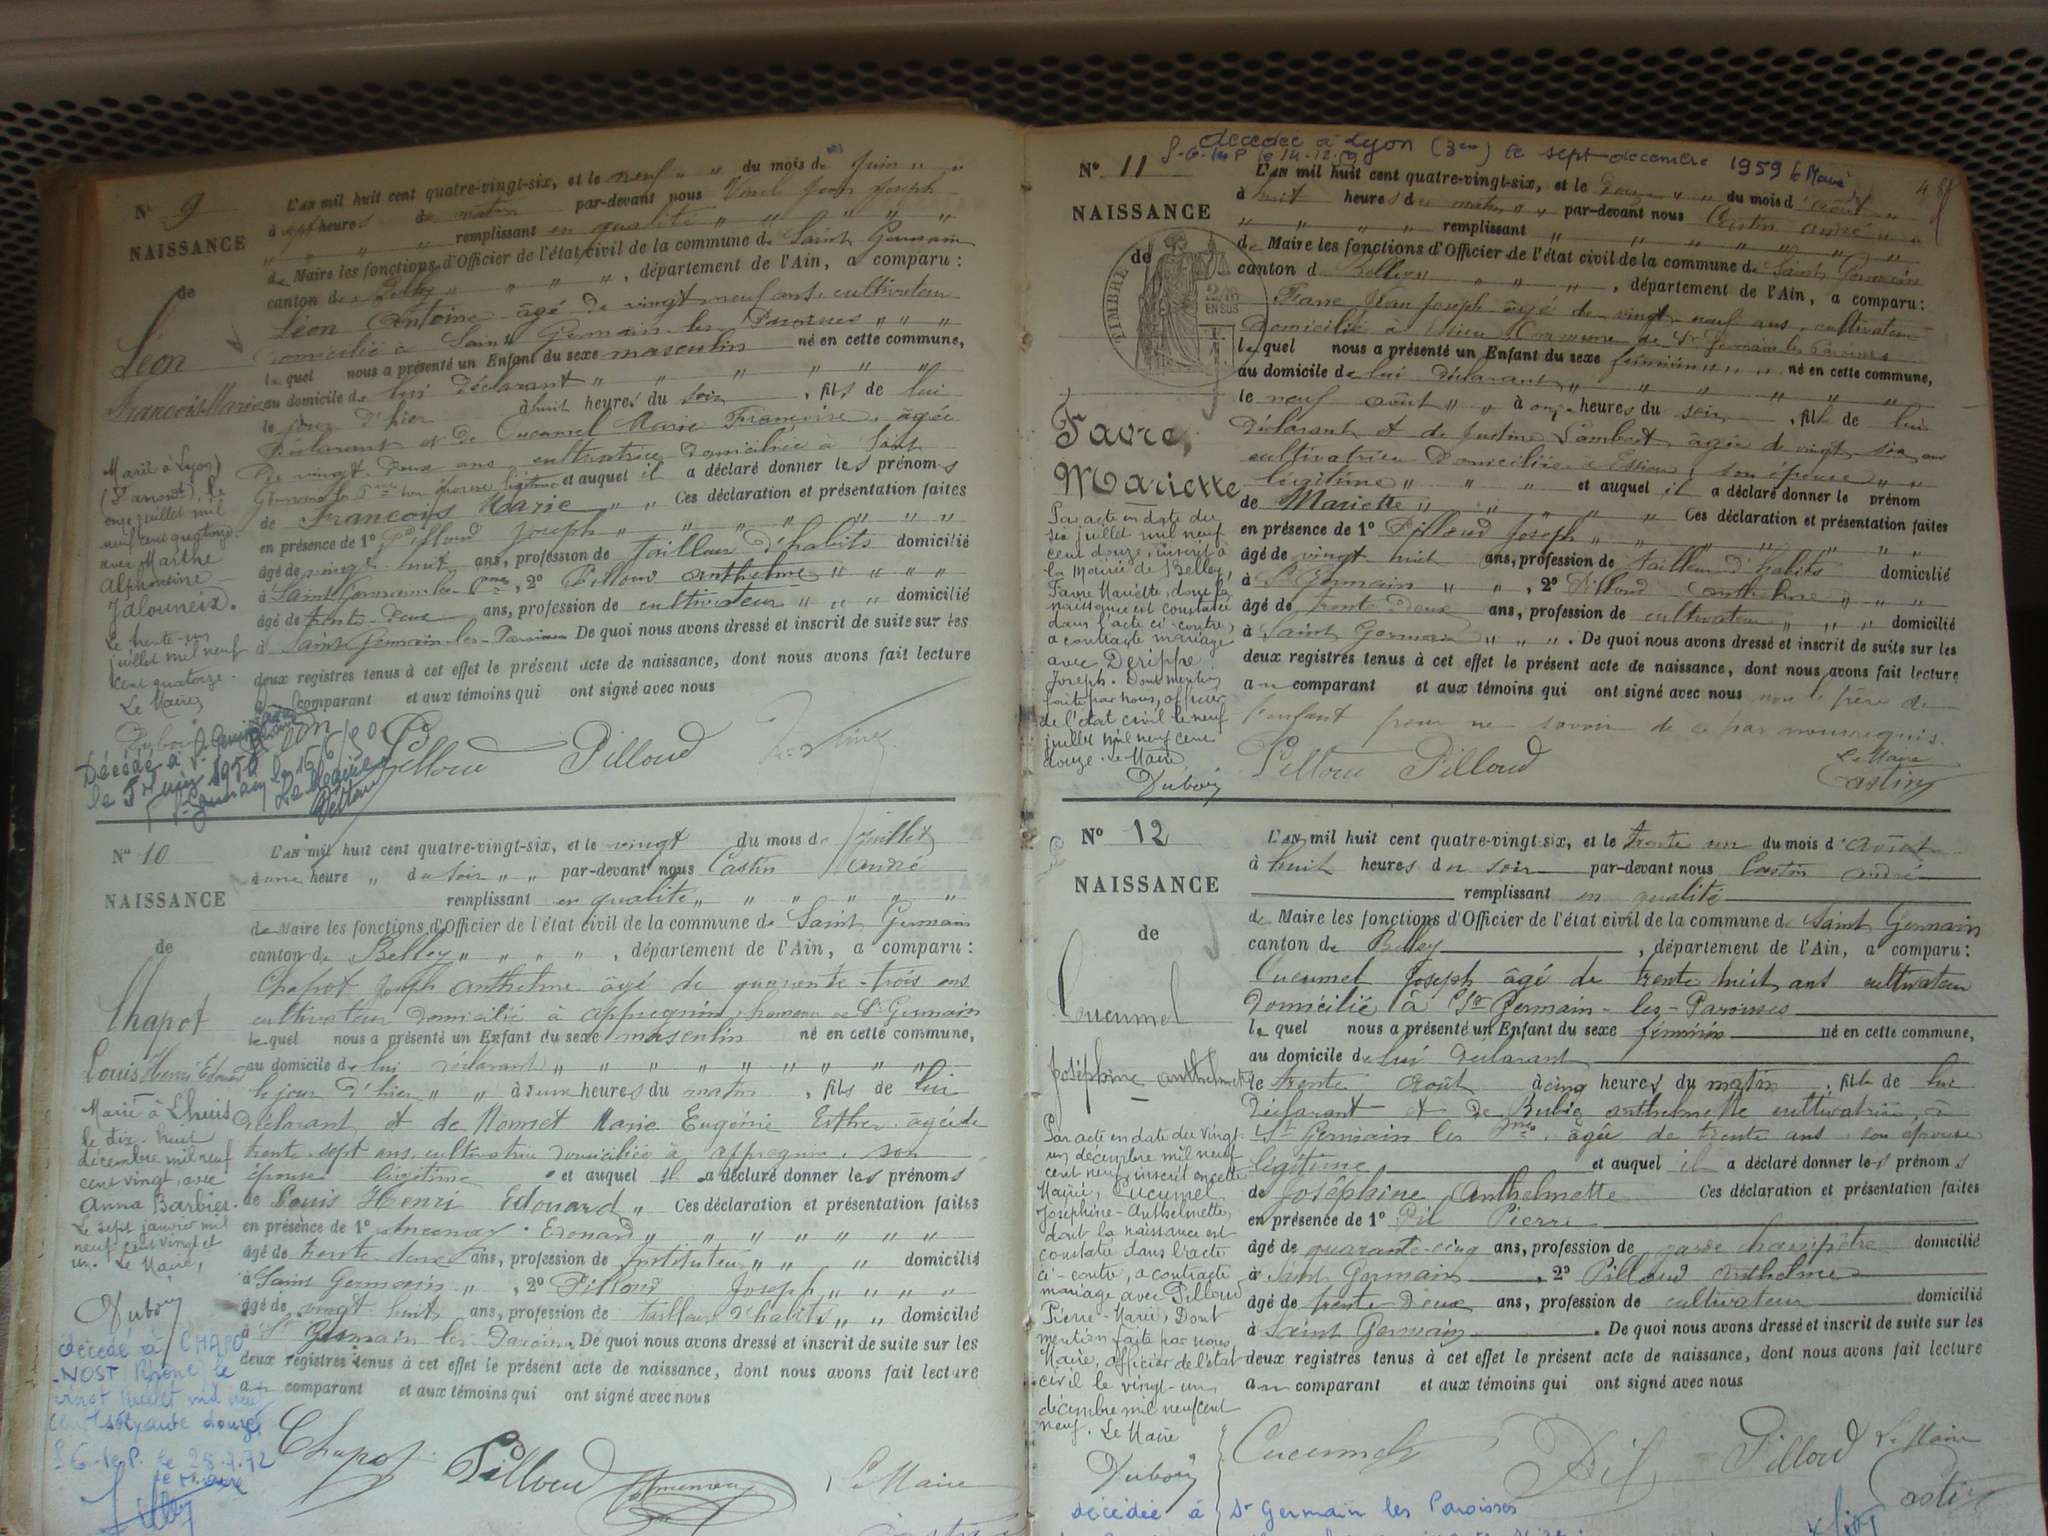 N° 9
NAISSANCE
de
Léon
François Marie
Marié à Lyon
onze juillet mil
neuf cent quatorze
avec Marthe
Alphonsine
Jalouneix.
Le trente-un
juillet mil neuf
cent quatorze.
Le Maire
Dubois
Décédé à
le 5 juin 1950
L'AN mil huit cent quatre-vingt-six, et le neuf du mois de Juin
à sept heures du matin par-devant nous Jean Joseph
remplissant en qualité
de Maire les fonctions d'Officier de l'état civil de la commune de Saint Germain
canton de Belley, département de l'Ain, a comparu :
Léon Antoine âgé de vingt neuf ans, cultivateur
domicilié à Saint Germain les Paroisses
lequel nous a présenté un Enfant du sexe masculin né en cette commune,
au domicile de lui déclarant
le jour d'hier à huit heures du soir, fils de lui
déclarant et de Cucumel Marie Françoise, âgée
de vingt deux ans cultivatrice domiciliée à Saint
Germain les son épouse légitime et auquel il a déclaré donner les prénoms
de François Marie Ces déclaration et présentation faites
en présence de 1° Pilloud Joseph
âgé de vingt huit ans, profession de Tailleur d'habits domicilié
à Saint Germain les, 2° Pilloud Anthelme
âgé de trente-deux ans, profession de cultivateur domicilié
à Saint Germain-les-Paroisses De quoi nous avons dressé et inscrit de suite sur les
deux registres tenus à cet effet le présent acte de naissance, dont nous avons fait lecture
au comparant et aux témoins qui ont signé avec nous
Pilloud Pilloud
N° 10
NAISSANCE
de
Chapot
Louis Henri Edouard
Marié à Lhuis
le dix-huit
décembre mil neuf
cent vingt, avec
Anna Barbier.
Le sept janvier mil
neuf cent vingt et
un. Le Maire,
Dubois
décédé à CHAPO
-NOST (Rhône) le
vingt juillet mil neuf
cent soixante douze
S.G.-les-P. le 28.7.72
le Maire
L'AN mil huit cent quatre-vingt-six, et le vingt du mois de Juillet
à une heure du soir par-devant nous Castin André
remplissant en qualité
de Maire les fonctions d'Officier de l'état civil de la commune de Saint Germain
canton de Belley, département de l'Ain, a comparu :
Chapot Joseph Anthelme âgé de quarante-trois ans
cultivateur domicilié à Appregnin, hameau de St Germain
lequel nous a présenté un Enfant du sexe masculin né en cette commune,
au domicile de lui déclarant
le jour d'hier à deux heures du matin, fils de lui
déclarant et de Monnet Marie Eugénie Esther âgée de
trente sept ans cultivatrice domiciliée à Appregnin, son
épouse légitime et auquel il a déclaré donner les prénoms
de Louis Henri Edouard Ces déclaration et présentation faites
en présence de 1° Edouard
âgé de trente deux ans, profession de Instituteur domicilié
à Saint Germain, 2° Pilloud Joseph
âgé de vingt huit ans, profession de tailleur d'habits domicilié
à St Germain les Paroisses. De quoi nous avons dressé et inscrit de suite sur les
deux registres tenus à cet effet le présent acte de naissance, dont nous avons fait lecture
au comparant et aux témoins qui ont signé avec nous
Chapot Pilloud Le Maire
décédée à Lyon (3em) le sept décembre 1959 le Maire
S-G-les P le 14-12-59
N° 11
NAISSANCE
de
TIMBRE
2/10 EN SUS
Favre,
Mariette
Par acte en date du
six juillet mil neuf
cent douze, inscrit à
la Mairie de Belley,
Favre Mariette, dont la
naissance est constatée
dans l'acte ci-contre,
a contracté mariage
avec Derippe
Joseph. Dont mention
faite par nous, officier
de l'état civil le neuf
juillet mil neuf cent
douze. Le Maire
Dubois
L'AN mil huit cent quatre-vingt-six, et le douze du mois d'août
à huit heures du matin par-devant nous Castin André
remplissant
de Maire les fonctions d'Officier de l'état civil de la commune de Saint Germain
canton de Belley, département de l'Ain, a comparu :
Favre Jean Joseph âgé de vingt neuf ans, cultivateur
domicilié à Commune de St Germain les Paroisses
lequel nous a présenté un Enfant du sexe féminin né en cette commune,
au domicile de lui déclarant
le neuf août à onze heures du soir, fille de lui
déclarant et de Justine Lambert âgée de vingt six ans
cultivatrice domiciliée à Essieu, son épouse
légitime et auquel il a déclaré donner le prénom
de Mariette Ces déclaration et présentation faites
en présence de 1° Pilloud Joseph
âgé de vingt huit ans, profession de tailleur d'habits domicilié
à St Germain, 2° Pilloud Anthelme
âgé de trente deux ans, profession de cultivateur domicilié
à Saint Germain. De quoi nous avons dressé et inscrit de suite sur les
deux registres tenus à cet effet le présent acte de naissance, dont nous avons fait lecture
au comparant et aux témoins qui ont signé avec nous non le père de
l'enfant pour ne savoir de ce par nous requis.
Pilloud Pilloud Le Maire
Castin
N° 12
NAISSANCE
de
Cucumel
Joséphine Anthelmette
Par acte en date du vingt-
un décembre mil neuf
cent neuf, inscrit en cette
Mairie, Cucumel
Joséphine-Anthelmette,
dont la naissance est
constatée dans l'acte
ci-contre, a contracté
mariage avec Pilloud
Pierre-Marie, Dont
mention faite par nous
Maire, officier de l'état
civil le vingt-un
décembre mil neuf cent
neuf. Le Maire
Dubois
L'AN mil huit cent quatre-vingt-six, et le trente un du mois d'août
à huit heures du soir par-devant nous Castin André
remplissant en qualité
de Maire les fonctions d'Officier de l'état civil de la commune de Saint Germain
canton de Belley, département de l'Ain, a comparu :
Cucumel Joseph âgé de trente huit ans cultivateur
domicilié à St Germain-les-Paroisses
lequel nous a présenté un Enfant du sexe féminin né en cette commune,
au domicile de lui déclarant
le trente août à cinq heures du matin, fille de lui
déclarant et de Anthelmette cultivatrice à
St Germain les Pses âgée de trente ans son épouse
légitime et auquel il a déclaré donner les prénoms
de Joséphine Anthelmette Ces déclaration et présentation faites
en présence de 1° Pil Pierre
âgé de quarante-cinq ans, profession de garde champêtre domicilié
à Saint Germain, 2° Pilloud Anthelme
âgé de trente-deux ans, profession de cultivateur domicilié
à Saint Germain. De quoi nous avons dressé et inscrit de suite sur les
deux registres tenus à cet effet le présent acte de naissance, dont nous avons fait lecture
au comparant et aux témoins qui ont signé avec nous
Cucumel Pil Pilloud Le Maire
Castin
décédée à St Germain les Paroisses